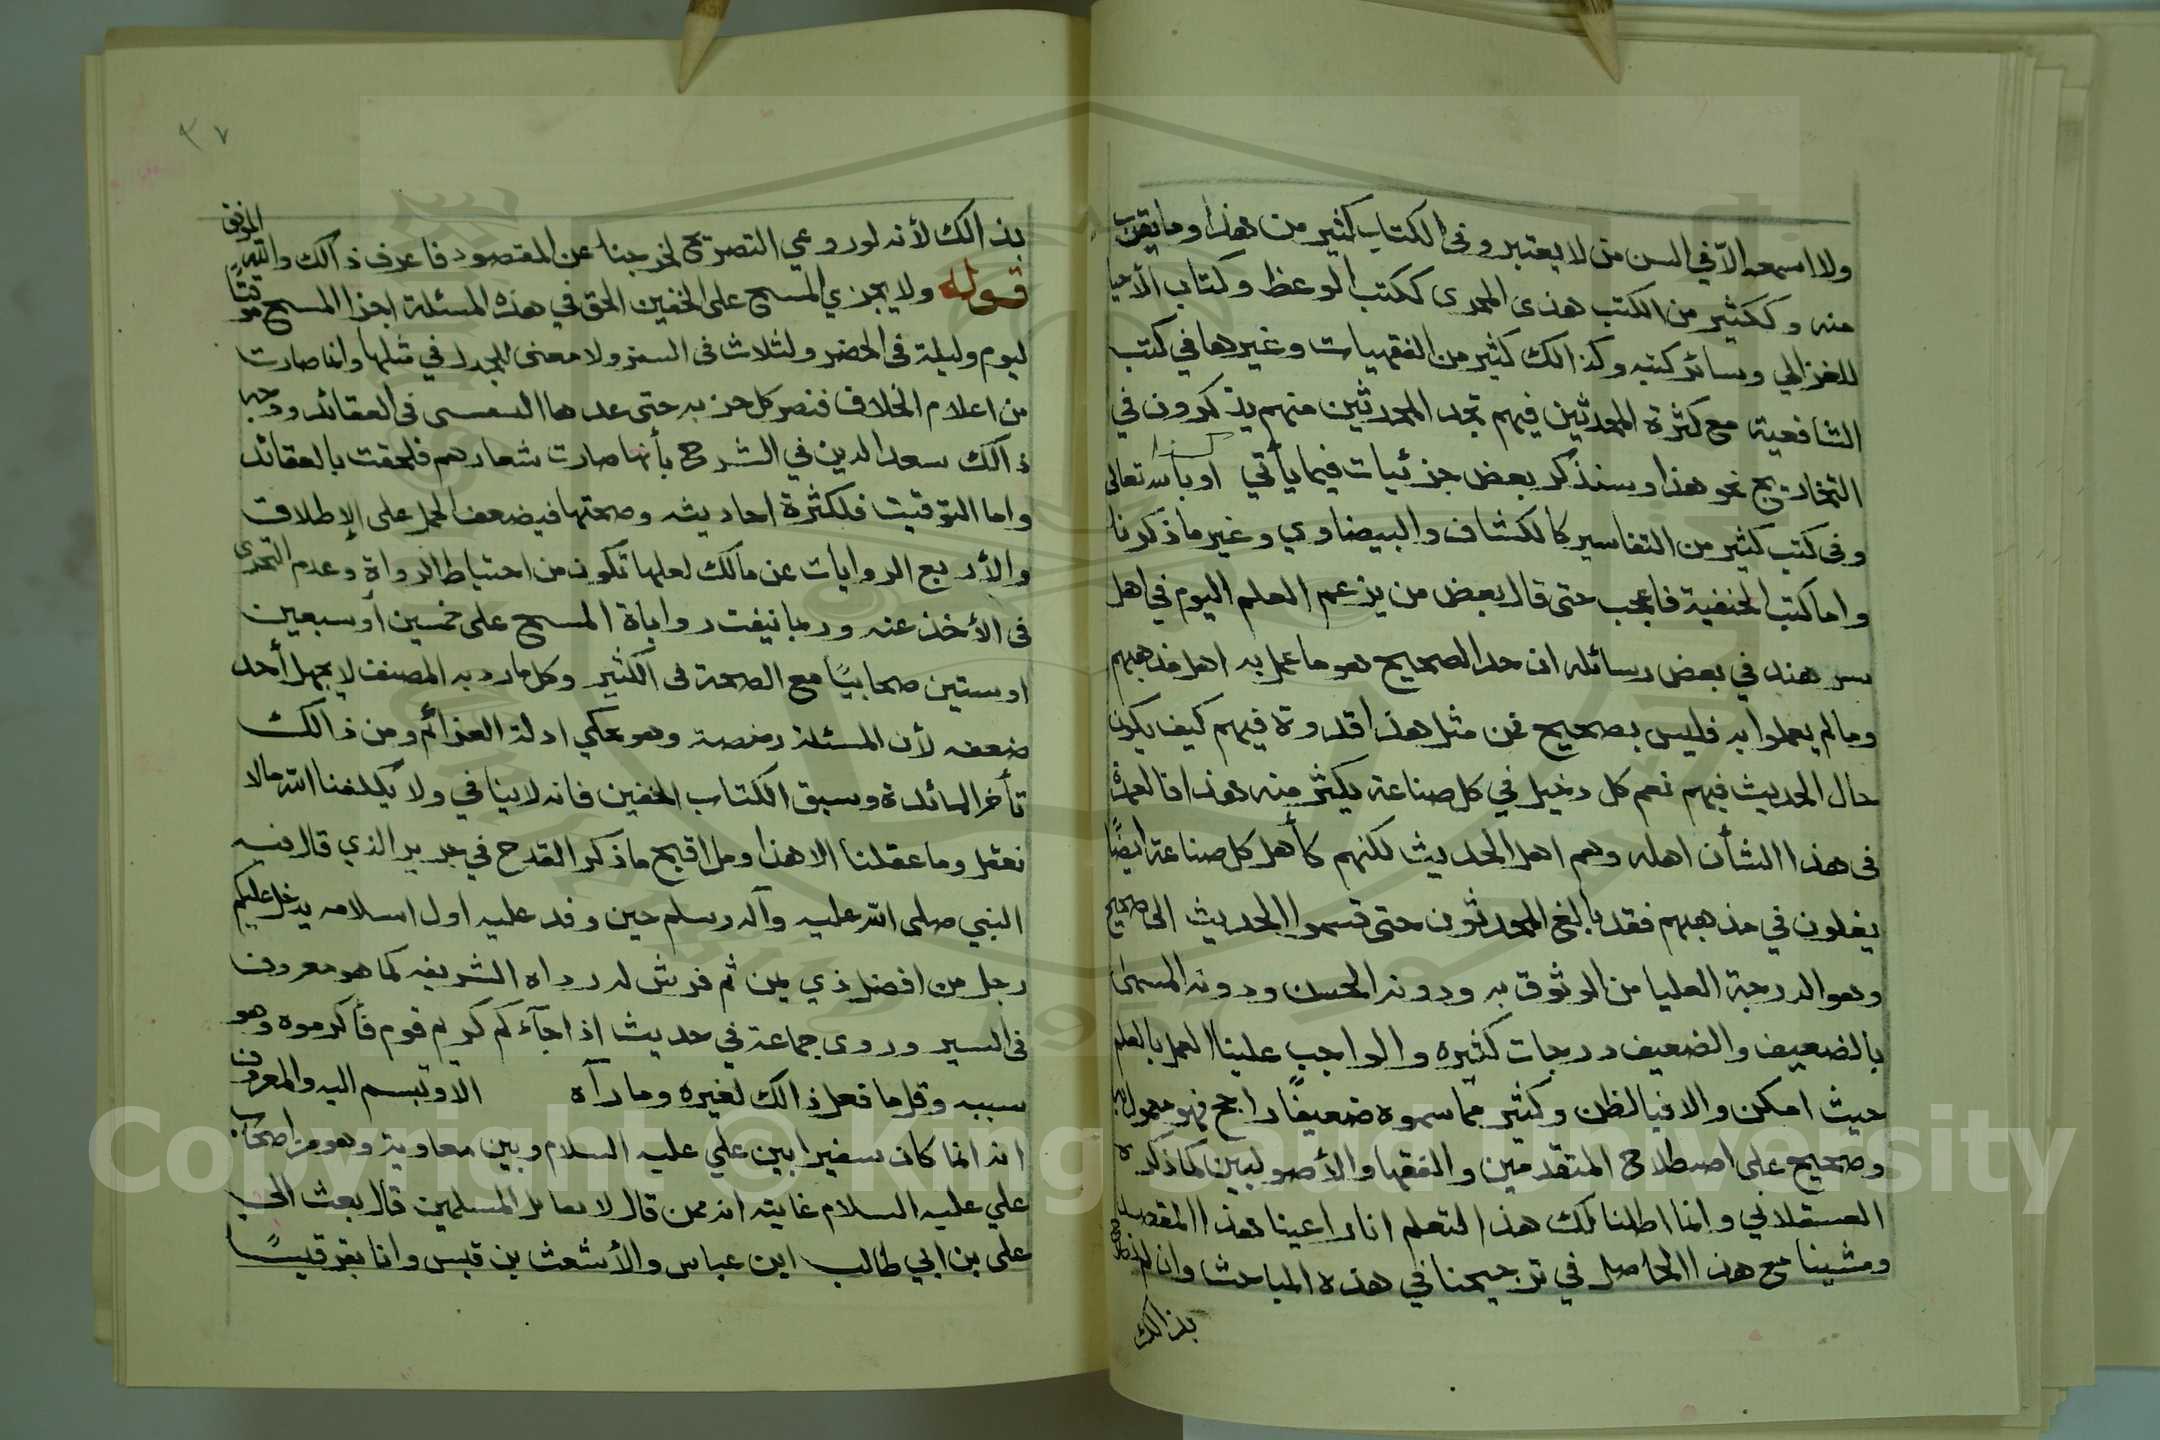 ولا اسمعه الا في السن من لا يعتبر وفي الكتاب كثير من هذا وما يقرب
منه وككثير من الكتب هذى المجرى ككتب الوعظ وكتاب الأحيا
للغزالي وسائر كتبه وكذالك كثير من الفقهيات وغيرها في كتب
الشافعية مع كثرة المحدثين فيهم تجد المحدثين منهم يذكرون في
التخاريج نحو هذا وسنذكر بعض جزئيات فيما يأتي
وفي كتب كثير من التفاسير كالكشاف والبيضاوي وغير ما ذكرنا
واما كتب الحنفية فاعجب حتى قال بعض من يزعم العلم اليوم في اهل
هند في بعض رسائله ان حد الصحيح هو ما عمل به اهل مذهبهم
وما لم يعملوا به فليس بصحيح فمن مثل هذا قدوة فيهم كيف يكون
حال الحديث فيهم نعم كل دخيل في كل صناعة يكثر منه هذا فالعمدة
في هذا الشأن اهله وهم اهل الحديث لكنهم كأهل كل صناعة ايضًا
يغلون في مذهبهم فقد بالغ المحدثون حتى قسموا الحديث الى صحيح
وهو الدرجة العليا من الوثوق به ودونه الحسن ودونه المسمى
بالضعيف والضعيف درجات كثيره والواجب علينا العمل بالعلم
حيث امكن والا فبالظن وكثير مما سموه ضعيفًا راجح فهو معمول به
وصحيح على اصطلاح المتقدمين والفقها والأصوليين كما ذكره
العسقلاني وانما اطلنا لك هذا لتعلم انا راعينا هذا المقصد
ومشينا مع هذا الحاصل في ترجيحنا في هذه المباحث وان لم نصرح
بذالك
٣٧
بذالك لأنه لو روعي التصريح لخرجنا عن المقصود فاعرف ذالك والله الموفق
قوله ولا يجزي المسح على الخفين الحق في هذه المسئلة اجزا المسح موقتًا
ليوم وليلة في الحضر ولثلاث في السفر ولا معنى للجدل في مثلها وانما صارت
من اعلام الخلاف فنصر كل حزبه حتى عدها النسفي في العقائد ووجه
ذالك سعد الدين في الشرح بأنها صارت شعارهم فلحقت بالعقائد
واما التوقيت فلكثرة احاديثه وصحتها فيضعف الحمل على الإطلاق
والأربع الروايات عن مالك لعلها تكون من احتياط الرواة وعدم التحري
في الأخذ عنه وربما نيفت رواياة المسح على خمسين أو سبعين
او ستين صحابيًا مع الصحة في الكثير وكل ما رد به المصنف لا يجهل أحد
ضعفه لأن المسئلة رخصة وهو يحكي ادلة العزائم ومن ذالك
تأخر المائدة وسبق الكتاب الخفين فانه لا ينافي ولا يكلفنا الله ما لا
نعقل وما عقلنا الا هذا وما اقبح ما ذكر القدح في جرير الذي قال فيه
النبي صلى الله عليه وآله وسلم حين وفد عليه اول اسلامه يدخل عليكم
رجل من افضل ذي يمن ثم فرش له رداه الشريفه كما هو معروف
في السير وروى جماعة في حديث اذا جآءكم كريم قوم فأكرموه وهو
سببه وقل ما فعل ذالك لغيره وما رآه الا وتبسم اليه والمعروف
انه انما كان سفيرا بين علي عليه السلام وبين معاوية وهو من اصحاب
علي عليه السلام غايته انه ممن قال لا نقاتل المسلمين قال بعث الي
علي بن ابي طالب ابن عباس والأشعث بن قيس وانا بقرقيسا
Copyright © King Saud University
1957